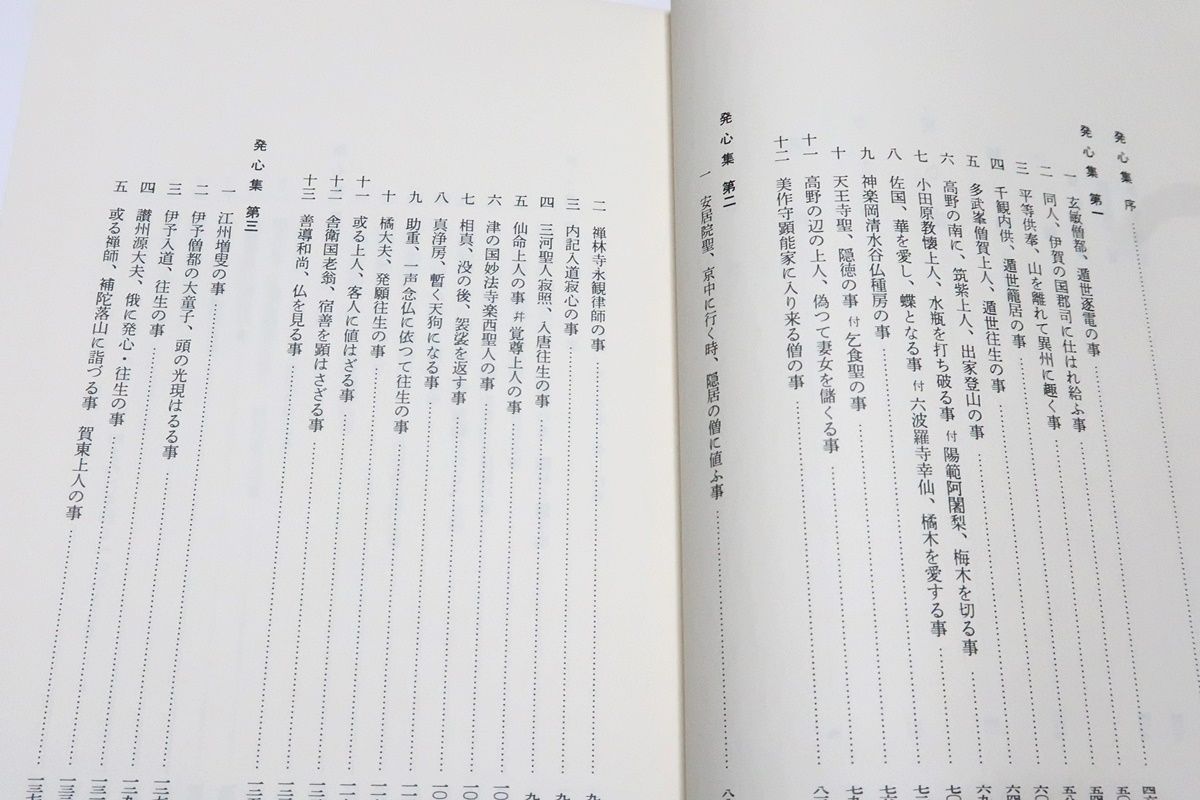 発心集 序
発心集 第一
一 玄敏僧都、遁世逐電の事
二 同人、伊賀の国郡司に仕はれ給ふ事
三 平等供奉、山を離れて異州に趣く事
四 千観内供、遁世籠居の事
五 多武峯僧賀上人、遁世往生の事
六 高野の南に、筑紫上人、出家登山の事
七 小田原教懐上人、水瓶を打ち破る事 付 陽範阿闍梨、梅木を切る事
八 佐国、華を愛し、蝶となる事 付 六波羅寺幸仙、橘木を愛する事
九 神楽岡清水谷仏種房の事
十 天王寺聖、隠徳の事 付 乞食聖の事
十一 高野の辺の上人、偽つて妻女を儲くる事
十二 美作守顕能家に入り来る僧の事
発心集 第二
一 安居院聖、京中に行く時、隠居の僧に値ふ事
二 禅林寺永観律師の事
三 内記入道寂心の事
四 三河聖人寂照、入唐往生の事
五 仙命上人の事 幷 覚尊上人の事
六 津の国妙法寺楽西聖人の事
七 相真、没の後、袈裟を返す事
八 真浄房、暫く天狗になる事
九 助重、一声念仏に依つて往生の事
十 橘大夫、発願往生の事
十一 或る上人、客人に値はざる事
十二 舎衛国老翁、宿善を顕はさざる事
十三 善導和尚、仏を見る事
発心集 第三
一 江州増叟の事
二 伊予僧都の大童子、頭の光現はるる事
三 伊予入道、往生の事
四 讃州源大夫、俄に発心・往生の事
五 或る禅師、補陀落山に詣づる事 賀東上人の事